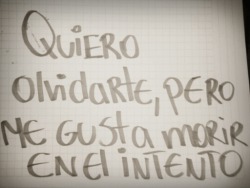 QUIERO
olvidarte, PERO
ME GUSTA MORIR
EN El INTENTO